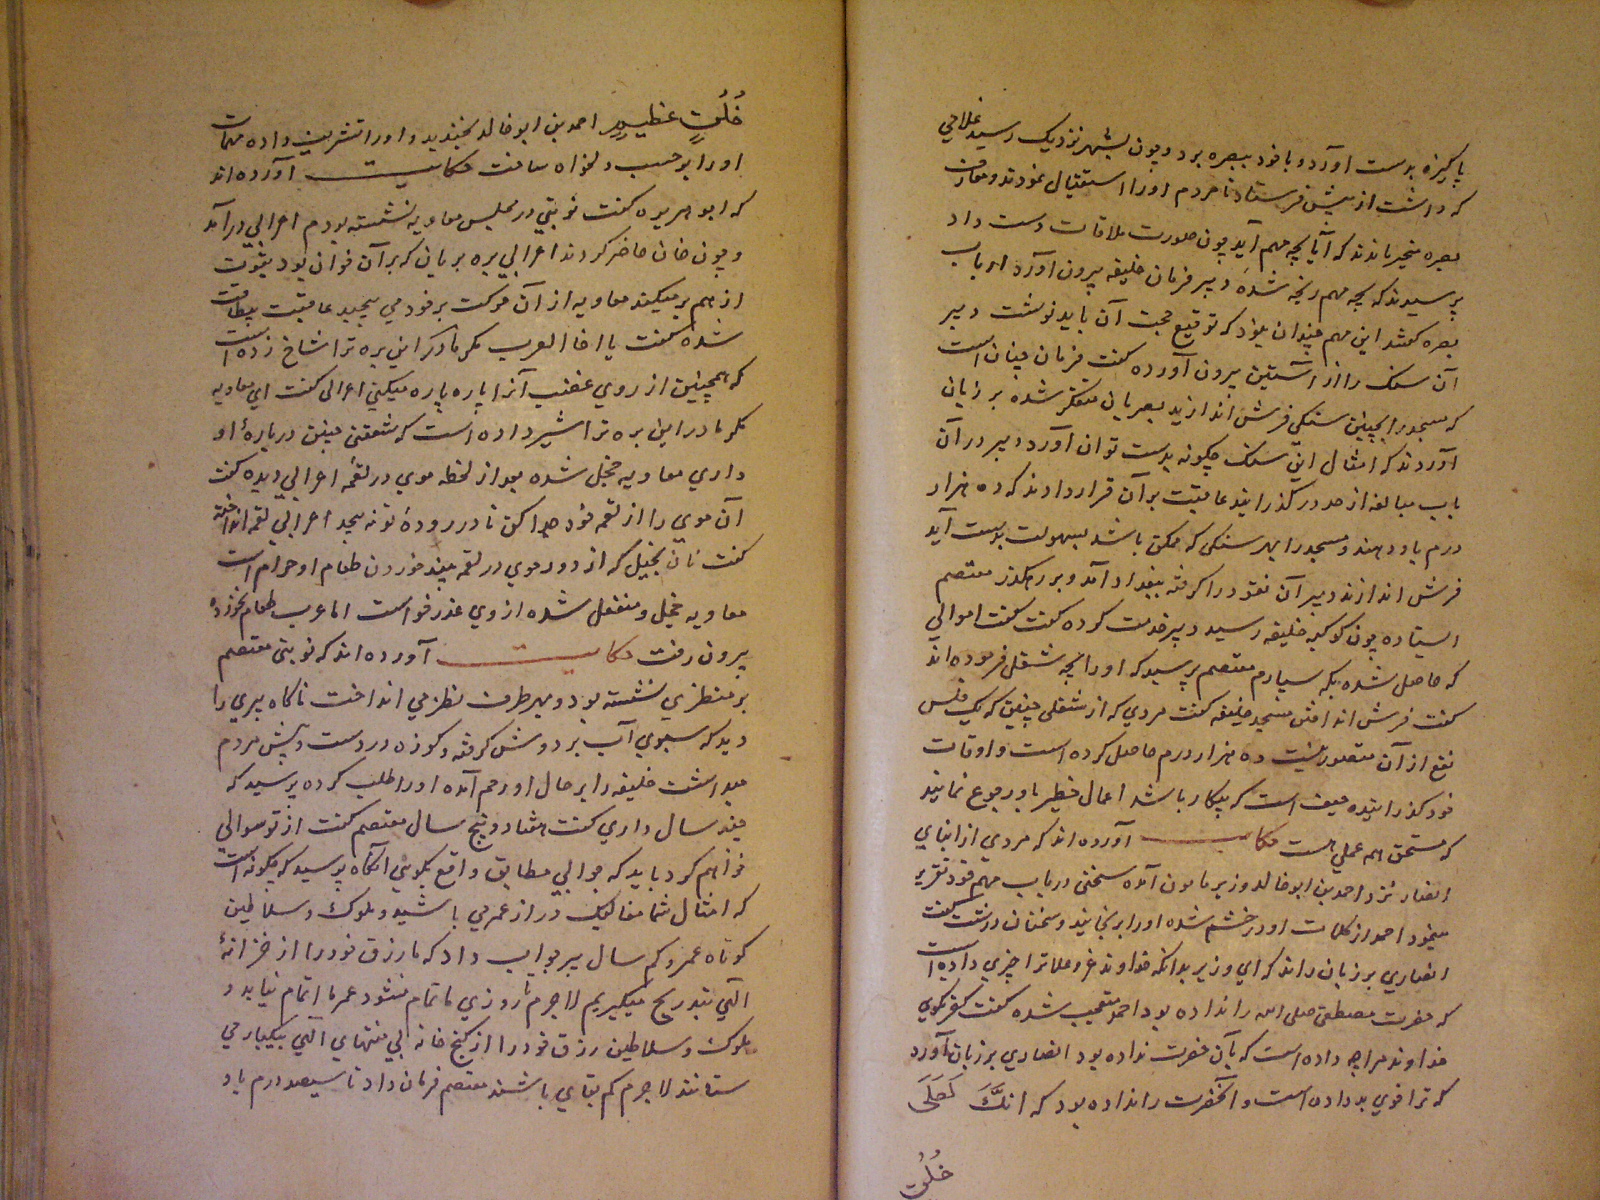 پاکیزه بدست آورد و با خود ببصره برد و چون بشهر نزدیک رسید غلامی
که داشت از پیش فرستاد تا مردم اورا استقبال نمودند و معارف
بصره متحیر ماندند که آیا بچه مهم آید چون صورت ملاقات دست داد
پرسیدند که بچه مهم رنجه شدهٔ دبیر فرمان خلیفه بیرون آورد ارباب
بصره گفتند این مهم چندان نبود که توقیع حجت آن باید نوشت دبیر
آن سنک را از آستین بیرون آورده گفت فرمان چنان است
که مسجد را بچنین سنکی فرش اندازید بصریان متفکر شده بر زبان
آوردند که امثال این سنک چکونه بدست توان آورد دبیر در آن
باب مبالغه از حد در گذرانید عاقبت بر آن قرار دادند که ده هزار
درم باو دهند و مسجد را بهر سنکی که ممکن باشد بسهولت بدست آید
فرش اندازند دبیر آن نقود را گرفته ببغداد آمد و بر رهکذر معتصم
ایستاده چون کوکبه خلیفه رسید دبیر خدمت کرده گفت اموالی
که حاصل شده بکه سپارم معتصم پرسید که اورا بچه شغل فرموده اند
گفت فرش انداختن مسجد خلیفه گفت مردی که از شغلی چنین که یک فلس
نفع از آن متصور نیست ده هزار درم حاصل کرده است و اوقات
خود گذرانیده حیف است که بیکار باشد اعمال خطیر باو رجوع نمایند
که مستحق همه عملی هست حکایت آورده اند که مردی از ابنای
انصار نزد احمد بن ابو خالد وزیر مامون آمده سخنی در باب مهم خود تقریر
مینمود احمد از کلمات او در خشم شده اورا برنجانید و سخنان درشت گفت
انصاری بر زبان راند که ای وزیر بدانکه خداوند عز و علا ترا چیزی داده است
که حضرت مصطفی صلی الله را نداده بود احمد متعجب شده گفت کفر مکوی
خداوند مرا چه داده است که بآن حضرت نداده بود انصاری بر زبان آورد
که ترا خوی بد داده است و آنحضرت را نداده بود که انکَّ لَعَلَی
خُلُقٍ
خُلُقٍ عظیمٍ احمد بن ابو خالد بخندید و اورا تشریف داده مهمات
اورا بر حسب دلخواه ساخت حکایت آورده اند
که ابو هریره گفت نوبتی در مجلس معاویه نشسته بودم اعرابی در آمد
و چون خان حاضر کردند اعرابی بره بریان که بر آن خوان بود بقوت
از هم بر میکند معاویه از آن حرکت بر خود می پیچید عاقبت بیطاقت
شده گفت یا اخا العرب مکر مادر این بره ترا شاخ زده است
که همچنین از روی غضب آنرا پاره پاره میکنی اعرابی گفت ای معاویه
مکر مادر این بره ترا شیر داده است که شفقتی چنین دربارهٔ او
داری معاویه خجل شده بعد از لحظه موی در لقمه اعرابی دیده گفت
آن موی را از لقمه خود جدا کن تا در رودهٔ تو نه پیچد اعرابی لقمه انداخته
گفت نان بخیل که از دور موی در لقمه بیند خوردن طعام او حرام است
معاویه خجل و منفعل شده از وی عذر خواست اما عرب طعام نخورده
بیرون رفت حکایت آورده اند که نوبتی معتصم
بر منظری نشسته بود و بهر طرف نظر می انداخت ناکاه پیری را
دید که سبوی آب بر دوش گرفته و کوزه در دست و پیش مردم
میداشت خلیفه را بر حال او رحم آمده اورا طلب کرده پرسید که
چند سال داری گفت هشتاد و پنج سال معتصم گفت از تو سوالی
خواهم کرد باید که جوابی مطابق واقع بگوئی آنگاه پرسید که چکونه است
که امثال شما مفالیک دراز عمر می باشید و ملوک و سلاطین
کوتاه عمر و کم سال پیر جواب داد که ما رزق خود را از خزانهٔ
الهی بتدریج میگیریم لاجرم تا روزی ما تمام نشود عمر ما اتمام نیابد و
ملوک و سلاطین رزق خود را از گنج خانه بی منتهای الهی بیکبار می
ستانند لاجرم کم بقای باشند معتصم فرمان داد تا سیصد درم باو